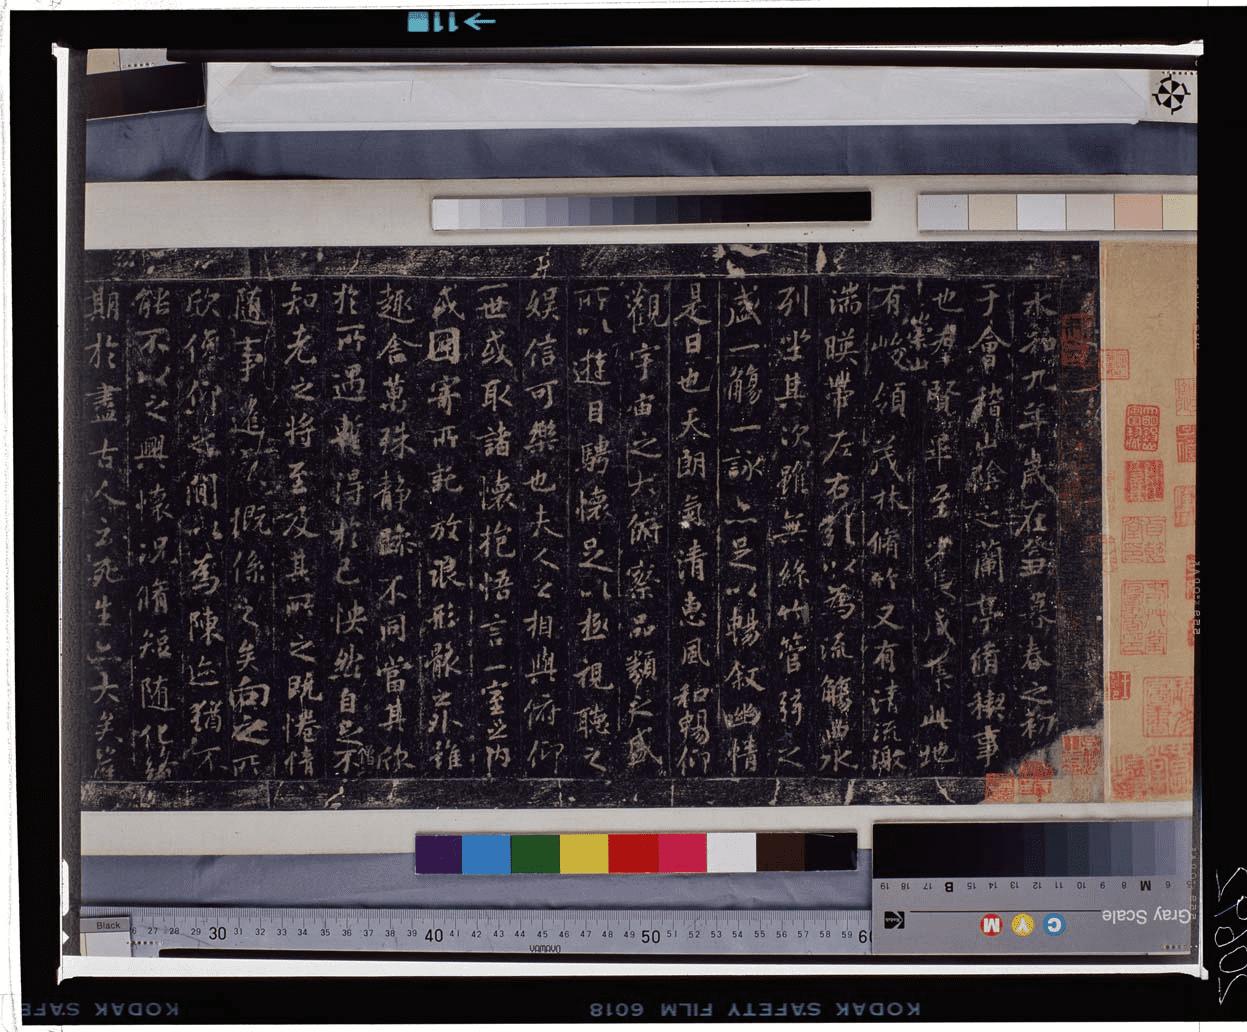 永和九年歲在癸丑暮春之初
于會稽山陰之蘭亭脩稧事
也羣賢畢至少長咸集此地
有崇山峻領茂林脩竹又有清流激
湍暎帶左右引以為流觴曲水
列坐其次雖無絲竹管弦之
盛一觴一詠亦足以暢叙幽情
是日也天朗氣清惠風和暢仰
觀宇宙之大俯察品類之盛
所以遊目騁懷足以極視聽之
娛信可樂也夫人之相與俯仰
一世或取諸懷抱悟言一室之內
或因寄所託放浪形骸之外雖
趣舍萬殊靜躁不同當其欣
於所遇暫得於己怏然自足不
僧
知老之將至及其所之既惓情
隨事遷感慨係之矣向之所
欣俛仰之間以為陳迹猶不
能不以之興懷況脩短隨化終
期於盡古人云死生亦大矣豈
Black
27 28 29 30 31 32 33 34 35 36 37 38 39 40 41 42 43 44 45 46 47 48 49 50 51 52 53 54 55 56 57 58 59
YAMAYO
Kodak
Gray Scale
C Y M
6 7 8 M 9 10 11 12 13 14 15 16 B 17 18 19
KODAK SAFETY FILM 6018
KODAK SAFE